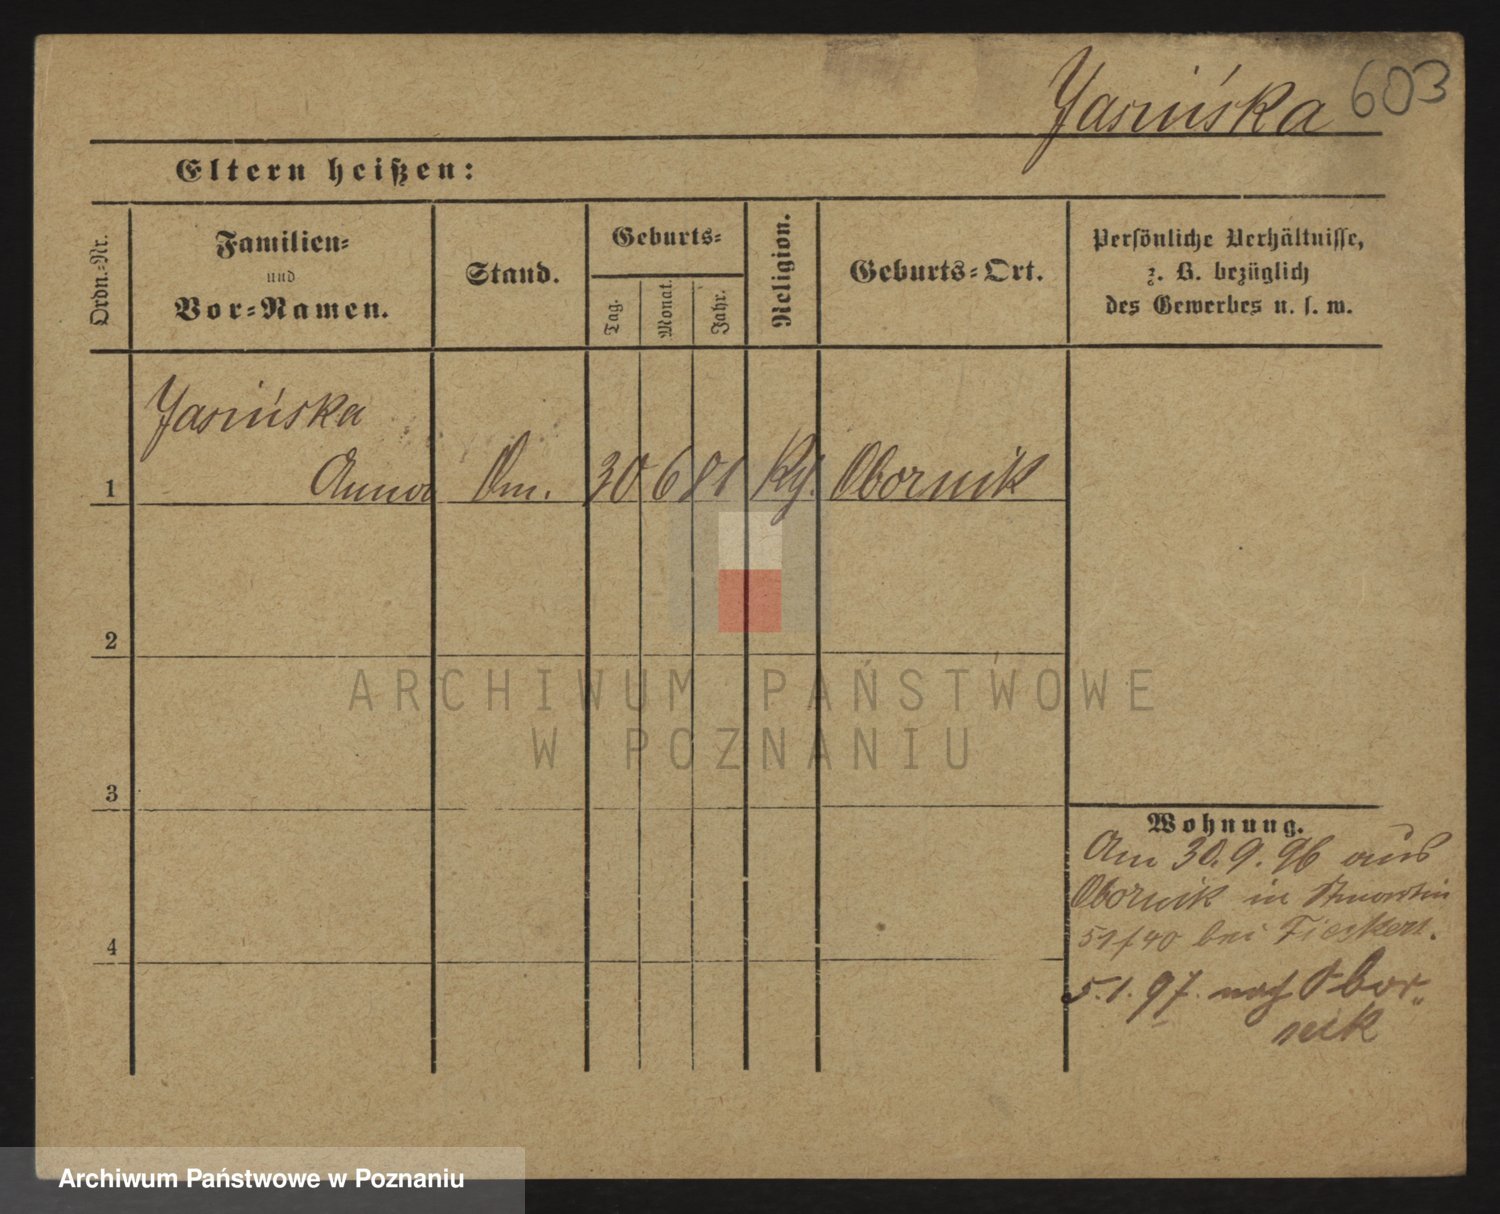 Jasińska 603
Eltern heißen:
Ordn.-Nr.
Familien-
und
Vor-Namen.
Stand.
Geburts-
Tag.
Monat.
Jahr.
Religion.
Geburts-Ort.
Persönliche Verhältnisse,
z. B. bezüglich
des Gewerbes u. s. w.
Jasińska
1 Anna 30 6 81 Obornik
2
3
4
Wohnung.
Am 30.9.96 aus
Obornik in Stmartin
51/40 bei
5.1.97. nach Obor-
nik
ARCHIWUM PAŃSTWOWE
W POZNANIU
Archiwum Państwowe w Poznaniu